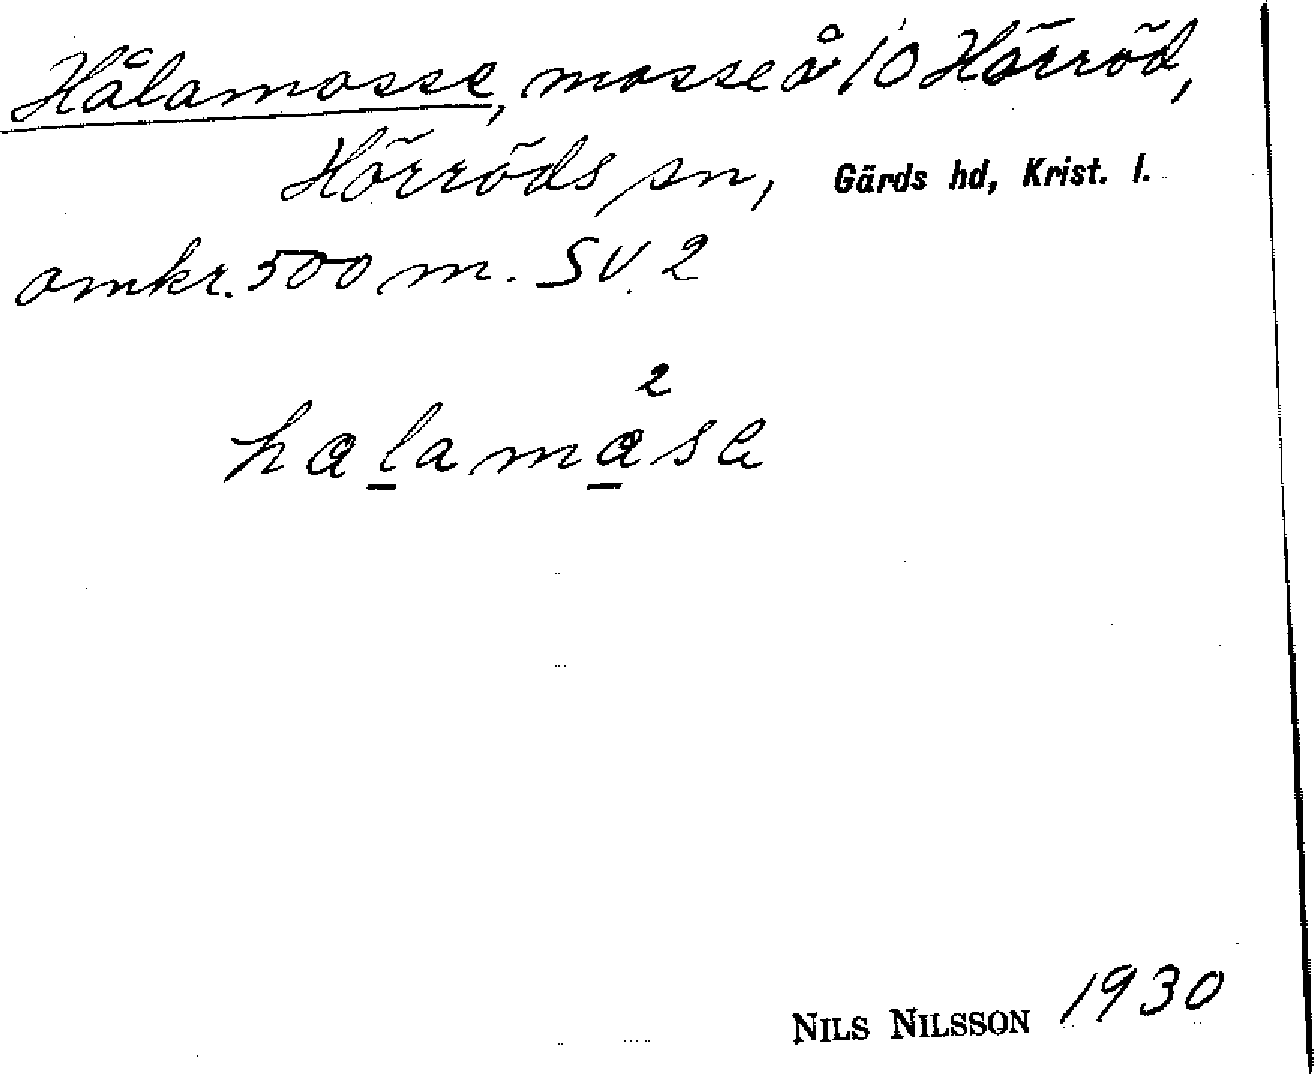 Hålamosse, mosse å 10 Hörröd,
Hörröds sn, Gärds hd, Krist. l.
omkr. 500 m. SV. 2
2
halamåse
NILS NILSSON 1930